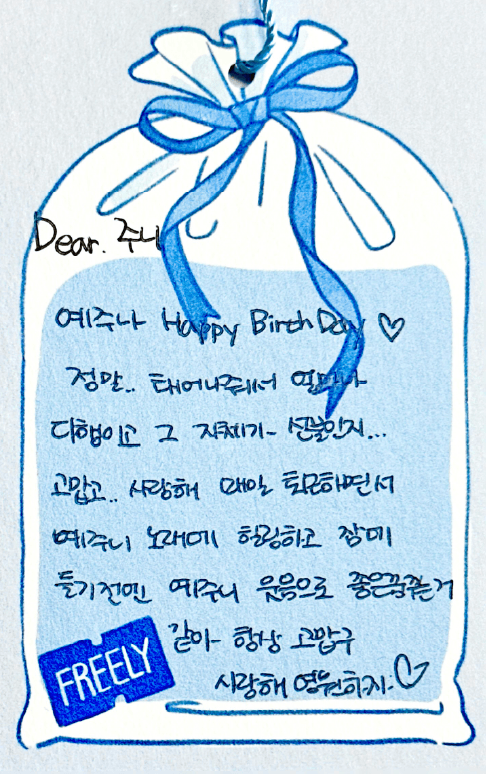 Dear. 주니
예주나 Happy Birth Day ♡
정말.. 태어나줘서 얼마나
다행이고 그 자체가 선물인지...
고맙고.. 사랑해 매일 퇴근하면서
예주니 노래에 힐링하고 잠에
들기전엔 예주니 웃음으로 좋은꿈꾸는거
같아 항상 고맙구
FREELY
사랑해 영원하자 ♡